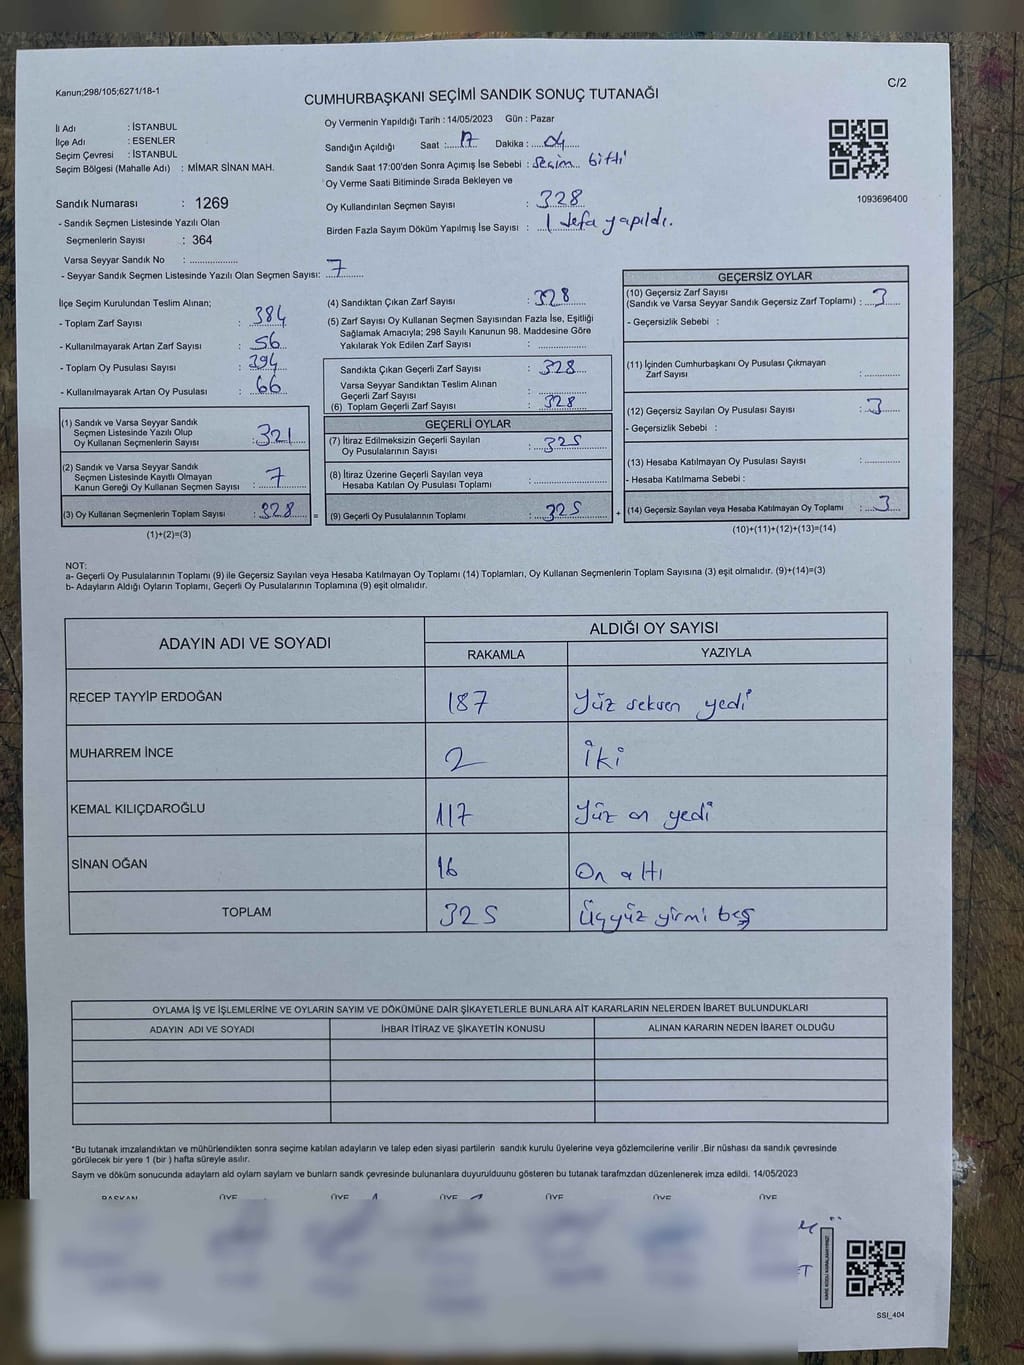 Kanun;298/105;6271/18-1
C/2
CUMHURBAŞKANI SEÇİMİ SANDIK SONUÇ TUTANAĞI
İl Adı : İSTANBUL
İlçe Adı : ESENLER
Seçim Çevresi : İSTANBUL
Seçim Bölgesi (Mahalle Adı) : MİMAR SİNAN MAH.
Sandık Numarası : 1269
- Sandık Seçmen Listesinde Yazılı Olan
Seçmenlerin Sayısı : 364
Varsa Seyyar Sandık No :
- Seyyar Sandık Seçmen Listesinde Yazılı Olan Seçmen Sayısı: 7
Oy Vermenin Yapıldığı Tarih : 14/05/2023 Gün : Pazar
Sandığın Açıldığı Saat : 17 Dakika : 04
Sandık Saat 17:00'den Sonra Açımış İse Sebebi : Seçim bitti
Oy Verme Saati Bitiminde Sırada Bekleyen ve
Oy Kullandırılan Seçmen Sayısı : 328
Birden Fazla Sayım Döküm Yapılmış İse Sayısı : 1 defa yapıldı.
1093696400
İlçe Seçim Kurulundan Teslim Alınan;
- Toplam Zarf Sayısı : 384
- Kullanılmayarak Artan Zarf Sayısı : 56
- Toplam Oy Pusulası Sayısı : 394
- Kullanılmayarak Artan Oy Pusulası : 66
(1) Sandık ve Varsa Seyyar Sandık
Seçmen Listesinde Yazılı Olup
Oy Kullanan Seçmenlerin Sayısı : 321
(2) Sandık ve Varsa Seyyar Sandık
Seçmen Listesinde Kayıtlı Olmayan
Kanun Gereği Oy Kullanan Seçmen Sayısı : 7
(3) Oy Kullanan Seçmenlerin Toplam Sayısı : 328
(1)+(2)=(3)
(4) Sandıktan Çıkan Zarf Sayısı : 328
(5) Zarf Sayısı Oy Kullanan Seçmen Sayısından Fazla İse, Eşitliği
Sağlamak Amacıyla; 298 Sayılı Kanunun 98. Maddesine Göre
Yakılarak Yok Edilen Zarf Sayısı :
Sandıkta Çıkan Geçerli Zarf Sayısı : 328
Varsa Seyyar Sandıktan Teslim Alınan
Geçerli Zarf Sayısı :
(6) Toplam Geçerli Zarf Sayısı : 328
=
GEÇERLİ OYLAR
(7) İtiraz Edilmeksizin Geçerli Sayılan
Oy Pusulalarının Sayısı : 325
(8) İtiraz Üzerine Geçerli Sayılan veya
Hesaba Katılan Oy Pusulası Toplamı :
(9) Geçerli Oy Pusulalarının Toplamı : 325
+
GEÇERSİZ OYLAR
(10) Geçersiz Zarf Sayısı
(Sandık ve Varsa Seyyar Sandık Geçersiz Zarf Toplamı) : 3
- Geçersizlik Sebebi :
(11) İçinden Cumhurbaşkanı Oy Pusulası Çıkmayan
Zarf Sayısı :
(12) Geçersiz Sayılan Oy Pusulası Sayısı : 3
- Geçersizlik Sebebi :
(13) Hesaba Katılmayan Oy Pusulası Sayısı :
- Hesaba Katılmama Sebebi :
(14) Geçersiz Sayılan veya Hesaba Katılmayan Oy Toplamı : 3
(10)+(11)+(12)+(13)=(14)
NOT:
a- Geçerli Oy Pusulalarının Toplamı (9) ile Geçersiz Sayılan veya Hesaba Katılmayan Oy Toplamı (14) Toplamları, Oy Kullanan Seçmenlerin Toplam Sayısına (3) eşit olmalıdır. (9)+(14)=(3)
b- Adayların Aldığı Oyların Toplamı, Geçerli Oy Pusulalarının Toplamına (9) eşit olmalıdır.
ADAYIN ADI VE SOYADI
ALDIĞI OY SAYISI
RAKAMLA YAZIYLA
RECEP TAYYİP ERDOĞAN 187 Yüz seksen yedi
MUHARREM İNCE 2 İki
KEMAL KILIÇDAROĞLU 117 Yüz on yedi
SİNAN OĞAN 16 On altı
TOPLAM 325 Üçyüz yirmi beş
OYLAMA İŞ VE İŞLEMLERİNE VE OYLARIN SAYIM VE DÖKÜMÜNE DAİR ŞİKAYETLERLE BUNLARA AİT KARARLARIN NELERDEN İBARET BULUNDUKLARI
ADAYIN ADI VE SOYADI İHBAR İTİRAZ VE ŞİKAYETİN KONUSU ALINAN KARARIN NEDEN İBARET OLDUĞU
*Bu tutanak imzalandıktan ve mühürlendikten sonra seçime katılan adayların ve talep eden siyasi partilerin sandık kurulu üyelerine veya gözlemcilerine verilir .Bir nüshası da sandık çevresinde
görülecek bir yere 1 (bir ) hafta süreyle asılır.
Sayım ve döküm sonucunda adayların ald oyların sayların ve bunların sandk çevresinde bulunanlara duyurulduunu gösteren bu tutanak tarafmzdan düzenlenerek imza edildi. 14/05/2023
BAŞKAN ÜYE ÜYE ÜYE ÜYE ÜYE ÜYE
SSI_404